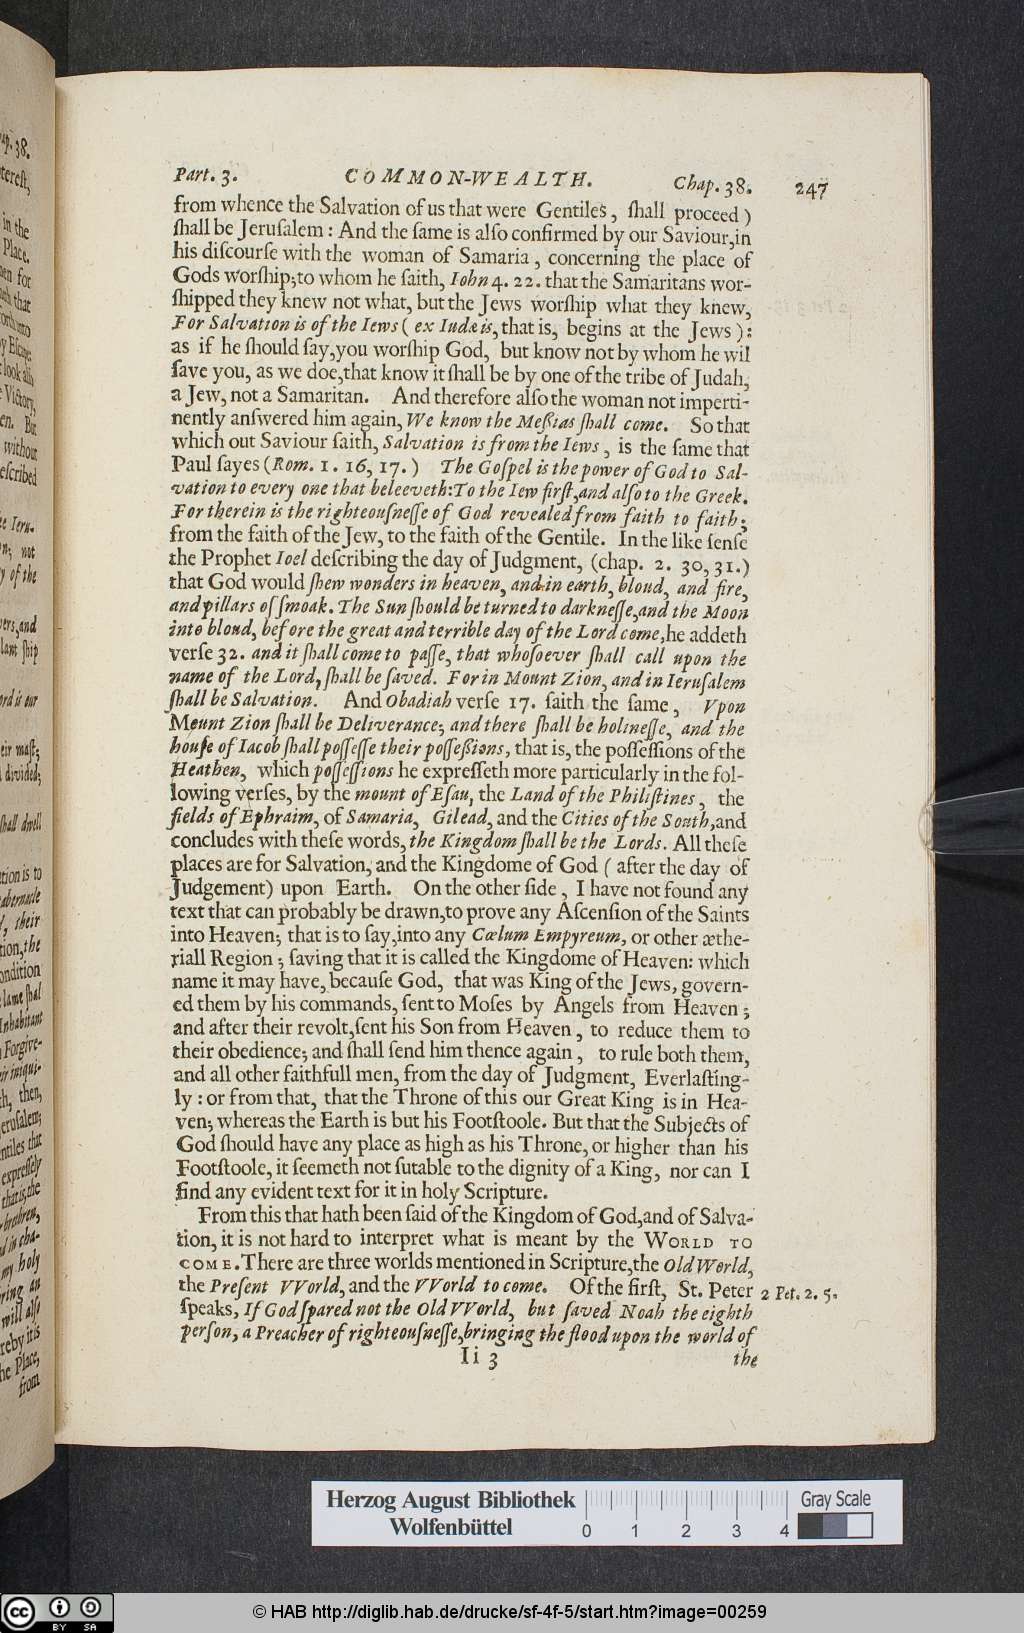 Part. 3. COMMON-WEALTH. Chap. 38. 247
from whence the Salvation of us that were Gentiles, ſhall proceed)
ſhall be Jeruſalem: And the ſame is alſo confirmed by our Saviour,in
his diſcourſe with the woman of Samaria, concerning the place of
Gods worſhip;to whom he ſaith, Iohn 4. 22. that the Samaritans wor-
ſhipped they knew not what, but the Jews worſhip what they knew,
For Salvation is of the Iews (ex Iudæis, that is, begins at the Jews):
as if he ſhould ſay,you worſhip God, but know not by whom he wil
ſave you, as we doe,that know it ſhall be by one of the tribe of Judah,
a Jew, not a Samaritan. And therefore alſo the woman not imperti-
nently anſwered him again, We know the Meßias ſhall come. So that
which out Saviour ſaith, Salvation is from the Iews, is the ſame that
Paul ſayes (Rom. 1. 16, 17.) The Goſpel is the power of God to Sal-
vation to every one that beleeveth:To the Iew firſt,and alſo to the Greek.
For therein is the righteouſneſſe of God revealed from faith to faith;
from the faith of the Jew, to the faith of the Gentile. In the like ſenſe
the Prophet Ioel deſcribing the day of Judgment, (chap. 2. 30, 31.)
that God would ſhew wonders in heaven, and in earth, bloud, and fire,
and pillars of ſmoak. The Sun ſhould be turned to darkneſſe,and the Moon
into bloud, before the great and terrible day of the Lord come,he addeth
verſe 32. and it ſhall come to paſſe, that whoſoever ſhall call upon the
name of the Lord, ſhall be ſaved. For in Mount Zion, and in Ieruſalem
ſhall be Salvation. And Obadiah verſe 17. ſaith the ſame, Vpon
Mount Zion ſhall be Deliverance; and there ſhall be holineſſe, and the
houſe of Iacob ſhall poſſeſſe their poſſeßions, that is, the poſſeſſions of the
Heathen, which poſſeſſions he expreſſeth more particularly in the fol-
lowing verſes, by the mount of Eſau, the Land of the Philiſtines, the
fields of Ephraim, of Samaria, Gilead, and the Cities of the South,and
concludes with theſe words, the Kingdom ſhall be the Lords. All theſe
places are for Salvation, and the Kingdome of God (after the day of
Judgement) upon Earth. On the other ſide, I have not found any
text that can probably be drawn,to prove any Aſcenſion of the Saints
into Heaven; that is to ſay,into any Cœlum Empyreum, or other æthe-
riall Region; ſaving that it is called the Kingdome of Heaven: which
name it may have, becauſe God, that was King of the Jews, govern-
ed them by his commands, ſent to Moſes by Angels from Heaven;
and after their revolt,ſent his Son from Heaven, to reduce them to
their obedience; and ſhall ſend him thence again, to rule both them,
and all other faithfull men, from the day of Judgment, Everlaſting-
ly: or from that, that the Throne of this our Great King is in Hea-
ven; whereas the Earth is but his Footſtoole. But that the Subjects of
God ſhould have any place as high as his Throne, or higher than his
Footſtoole, it ſeemeth not ſutable to the dignity of a King, nor can I
find any evident text for it in holy Scripture.
From this that hath been ſaid of the Kingdom of God,and of Salva-
tion, it is not hard to interpret what is meant by the WORLD TO
COME. There are three worlds mentioned in Scripture,the Old World,
the Preſent VVorld, and the VVorld to come. Of the firſt, St. Peter
2 Pet. 2. 5.
ſpeaks, If God ſpared not the Old VVorld, but ſaved Noah the eighth
perſon, a Preacher of righteouſneſſe,bringing the flood upon the world of
Ii 3 the
Herzog August Bibliothek
Wolfenbüttel
0 1 2 3 4
Gray Scale
BY SA
© HAB http://diglib.hab.de/drucke/sf-4f-5/start.htm?image=00259